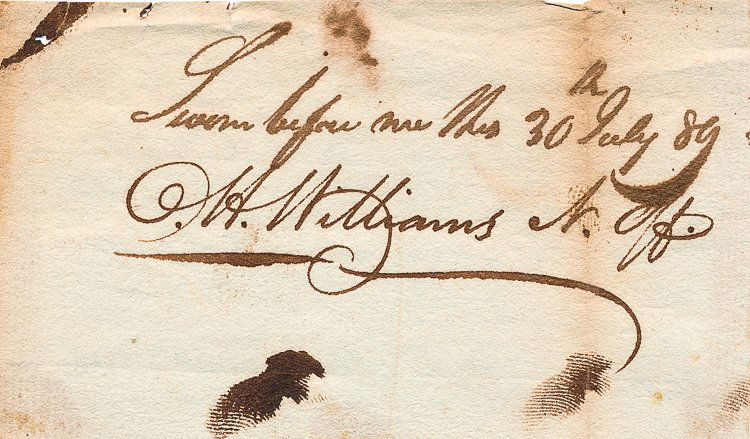 Sworn before me this 30th July 89
O. H. Williams N. Off.